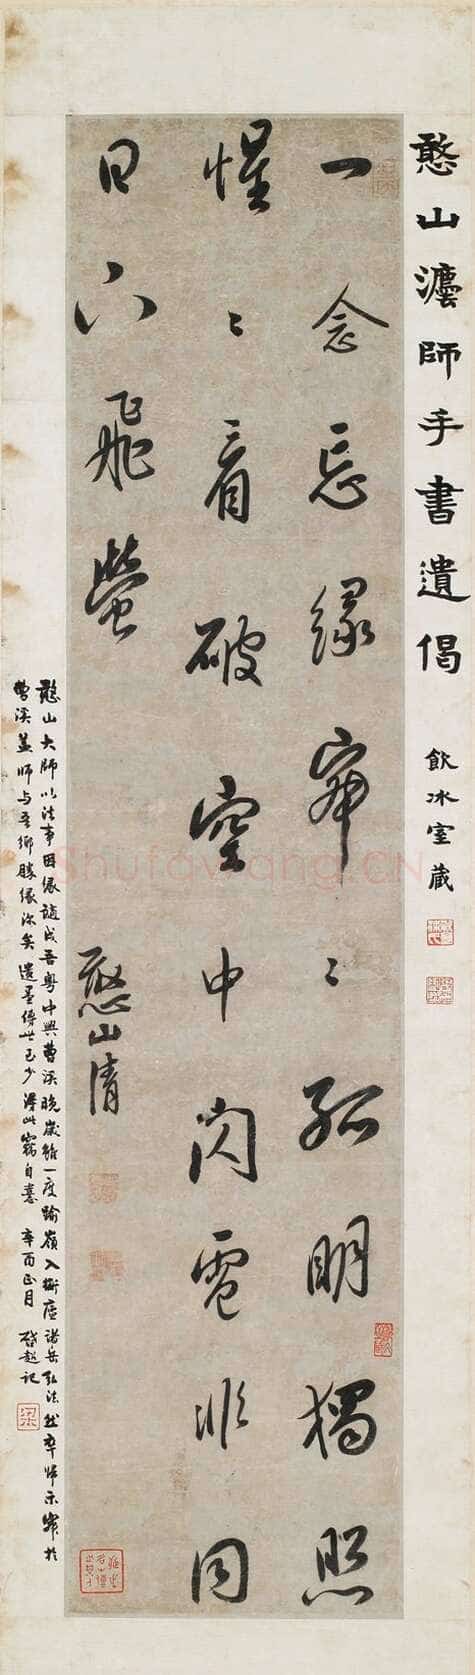 憨山灋師手書遺偈 飲冰室藏
一念忘緣寂〻孤明獨照
惺〻看破空中閃電非同
日下飛螢
憨山清
憨山大師以法事因緣謫戍吾粵中興曹溪晚歲雖一度踰嶺入衡廬諸岳弘法然卒歸示寂於
曹溪蓋師与吾鄉勝緣深矣遺墨傳世已少得此竊自憙 辛酉正月 啓超記
Shufawang.CN